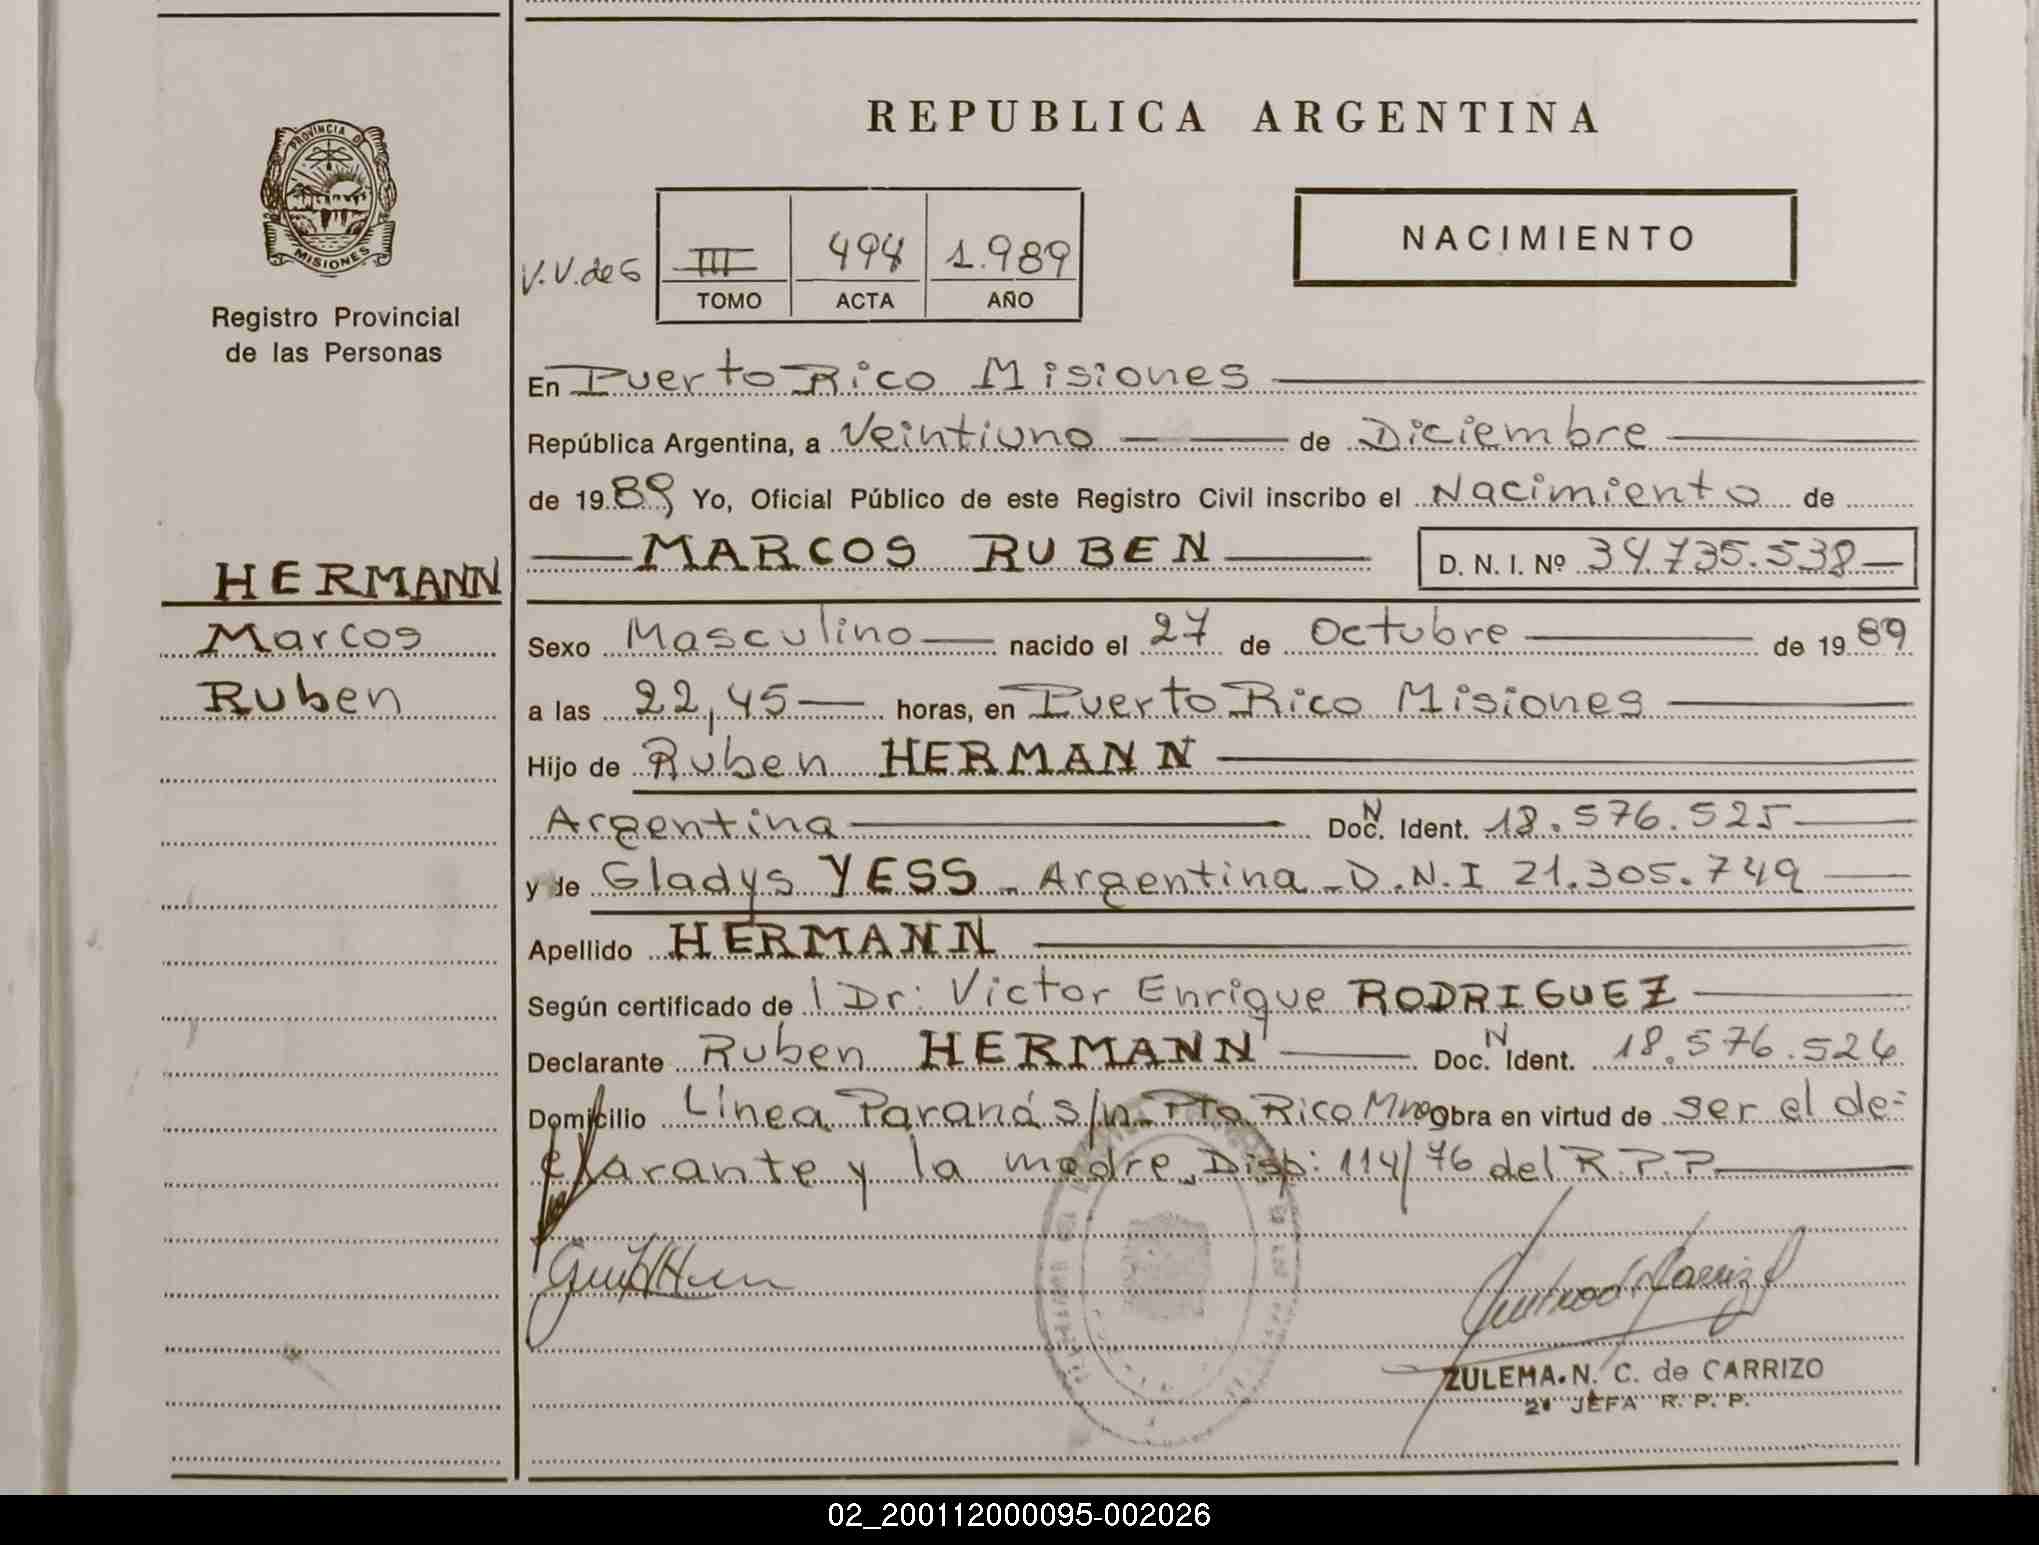 REPUBLICA ARGENTINA
PROVINCIA D
MISIONES
Registro Provincial
de las Personas
V.V. de G
III 494 1.989
TOMO ACTA AÑO
NACIMIENTO
En Puerto Rico Misiones
República Argentina, a Veintiuno de Diciembre
de 19 89 Yo, Oficial Público de este Registro Civil inscribo el Nacimiento de
MARCOS RUBEN D. N. I. Nº 34.735.538
HERMANN
Marcos
Ruben
Sexo Masculino nacido el 27 de Octubre de 19 89
a las 22,45 horas, en Puerto Rico Misiones
Hijo de Ruben HERMANN
Argentina Doc. N Ident. 18.576.525
y de Gladys YESS - Argentina - D.N.I 21.305.749
Apellido HERMANN
Según certificado de Dr: Victor Enrique RODRIGUEZ
Declarante Ruben HERMANN Doc. N Ident. 18.576.526
Domicilio Linea Paraná s/n. Pto Rico Mnes Obra en virtud de ser el de-
clarante y la madre. Disp: 114/76 del R.P.P.
ZULEMA. N. C. de CARRIZO
2ª JEFA R. P. P.
02_200112000095-002026